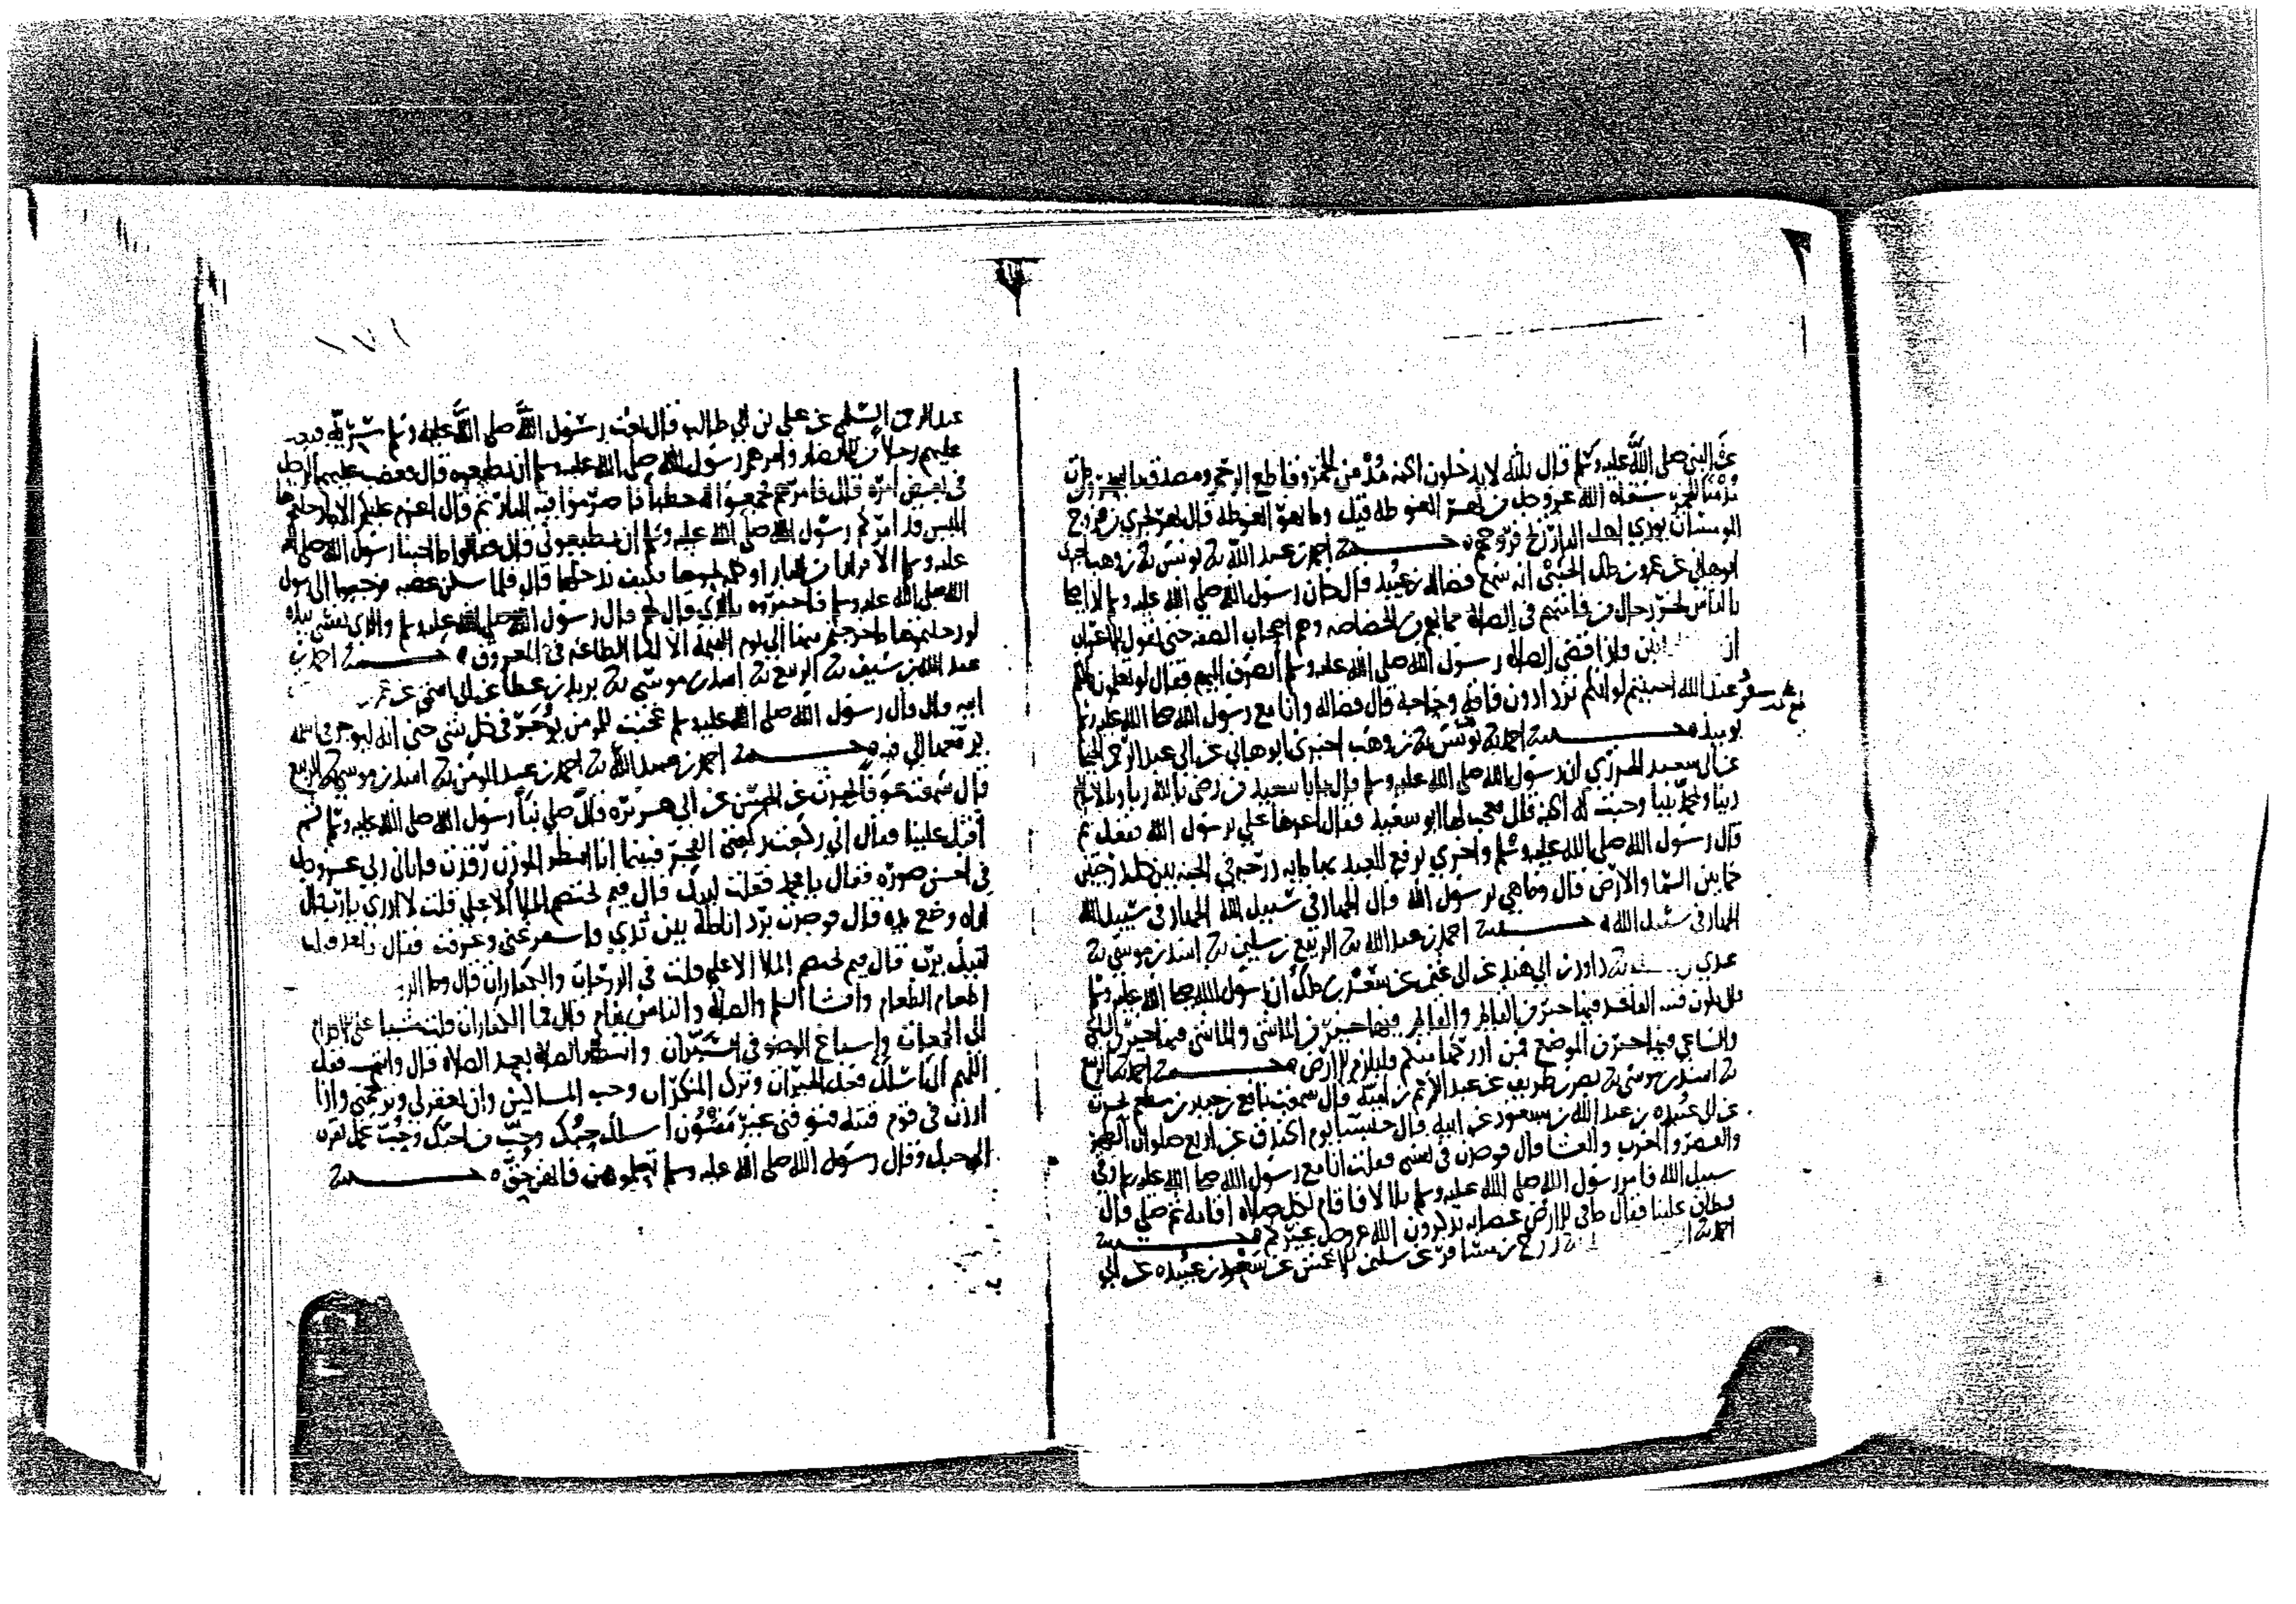 عن النبي صلى الله عليه وسلم قال ثلثة لا يدخلون الجنه مدمن الخمر وقاطع الرحم ومصدق بالسحر ومن
مدمنا للخمر سقاه الله عز وجل من نهر الغوطه قيل وما نهر الغوطه قال نهر يجري من فروج
المومسات يوذي اهل النار ريح فروجهم حدثنا احمد بن عبد الله نا يونس نا بن وهب اخبرني
ابو هاني عن عمرو بن ملك الجنبي انه سمع فضاله بن عبيد قال كان رسول الله صلى الله عليه وسلم اذا صلى
بالناس يخر رجال من قامتهم في الصلاة مما بهم من الخصاصه وهم اصحاب الصفه حتى يقول الاعراب
ان فاذا قضى الصلاة رسول الله صلى الله عليه وسلم انصرف اليهم فقال لو تعلمون ما لكم
عند الله احببتم لو انكم تزدادون فاقة وحاجة قال فضاله وانا مع رسول الله صلى الله عليه وسلم
يوميذ حدثنا احمد نا يونس نا بن وهب اخبرني ابو هاني عن ابي عبد الرحمن الحبلي
عن ابي سعيد الخدري ان رسول الله صلى الله عليه وسلم قال يا با سعيد من رضي بالله ربا وبالاسلام
دينا وبمحمد نبيا وجبت له الجنه قال فعجب لها ابو سعيد فقال اعدها علي يرسول الله ففعل ثم
قال رسول الله صلى الله عليه وسلم واخرى يرفع للعبد بها مايه درجه في الجنه بين كل درجتين
كما بين السما والارض قال وما هي يرسول الله قال الجهاد في سبيل الله الجهاد في سبيل الله
الجهاد في سبيل الله حدثنا احمد بن عبد الله نا الربيع بن سليمن نا اسد بن موسى نا
عدي نا داود بن ابي هند عن ابي عثمن عن سعد بن ملك ان رسول الله صلى الله عليه وسلم
قال تكون فتنه القاعد فيها خير من القايم والقايم فيها خير من الماشي والماشي فيها خير من الساعي
والساعي فيها خير من الموضع فمن ادركها منكم فليلزم الارض حدثنا احمد نا الربيع
نا اسد بن موسى نا نصر بن طريف عن عبد الكريم بن اميه قال سمعت نافع بن جبير بن مطعم يحدث
عن ابي عبيده بن عبد الله بن مسعود عن ابيه قال حبسنا يوم الخندق عن اربع صلوات الظهر
والعصر والمغرب والعشا قال فوجدت في نفسي فقلت انا مع رسول الله صلى الله عليه وسلم وفي
سبيل الله فامر رسول الله صلى الله عليه وسلم بلالا فاقام لكل صلاة اقامة ثم صلى قال
فطاف علينا فقال ما في الارض عصابه يذكرون الله عز وجل غيركم حدثنا
احمد نا روح بن مسافر عن سليمن الاعمش عن سعد بن عبيده عن ابي
١٧١
عبد الرحمن السلمي عن علي بن ابي طالب قال بعث رسول الله صلى الله عليه وسلم سريه
عليهم رجلا من الانصار وامرهم رسول الله صلى الله عليه وسلم ان يطيعوه قال فغضب عليهم الرجل
في بعض امره قال فامرهم فجمعوا له حطبا فاضرموا فيه النار ثم قال اعزم عليكم الا دخلتموها
اليس قد امركم رسول الله صلى الله عليه وسلم ان تطيعوني قال فقالوا ما اتبعنا رسول الله صلى الله
عليه وسلم الا فرارا من النار فكيف ندخلها قال فلما سكن غضبه رجعوا الى رسول
الله صلى الله عليه وسلم فاخبروه بالذي قال لهم قال رسول الله صلى الله عليه وسلم والذي نفسي بيده
لو دخلتموها ما خرجتم منها الى يوم القيمة الا انما الطاعة في المعروف حدثنا احمد بن
عبد الله بن سيف نا الربيع نا اسد بن موسى نا يزيد بن عطا عن ابي اسحق عن عمر
ابيه قال قال رسول الله صلى الله عليه وسلم عجبت للمومن يوجر في كل شي حتى انه ليوجر في اللقمة
يرفعها الى فيه حدثنا احمد بن عبد الله نا احمد بن عبد المومن نا اسد بن موسى نا الربيع
قال سمعت عوفا يحدث عن الحسن عن ابي هريره قال صلى بنا رسول الله صلى الله عليه وسلم ثم
اقبل علينا فقال اني ركعت ركعتي الفجر فبينما انا انتظر الموذن رقدت فاتاني ربي عز وجل
في احسن صورة فقال يا محمد فقلت لبيك قال فيم يختصم الملأ الاعلى قلت لا ادري يا رب قال
اراه وضع يده قال فوجدت برد انامله بين ثديي وعرفت فقال يا محمد قلت
لبيك يرب قال فيم يختصم الملأ الاعلى قلت في الدرجات والكفارات قال وما الدرجات
اطعام الطعام وافشا السلم والصلاة والناس نيام قال فما الكفارات قلت مشيا على الاقدام
الى الجمعات واسباغ الوضو في السبرات وانتظار الصلاة بعد الصلاة قال فقل
اللهم اني اسلك فعل الخيرات وترك المنكرات وحب المساكين وان تغفر لي وترحمني واذا
اردت في قوم فتنه فتوفني غير مفتون اسلك حبك وحب من احبك وحب عمل يقرب
الى حبك وقال رسول الله صلى الله عليه وسلم تعلموهن فانهن حق حدثنا